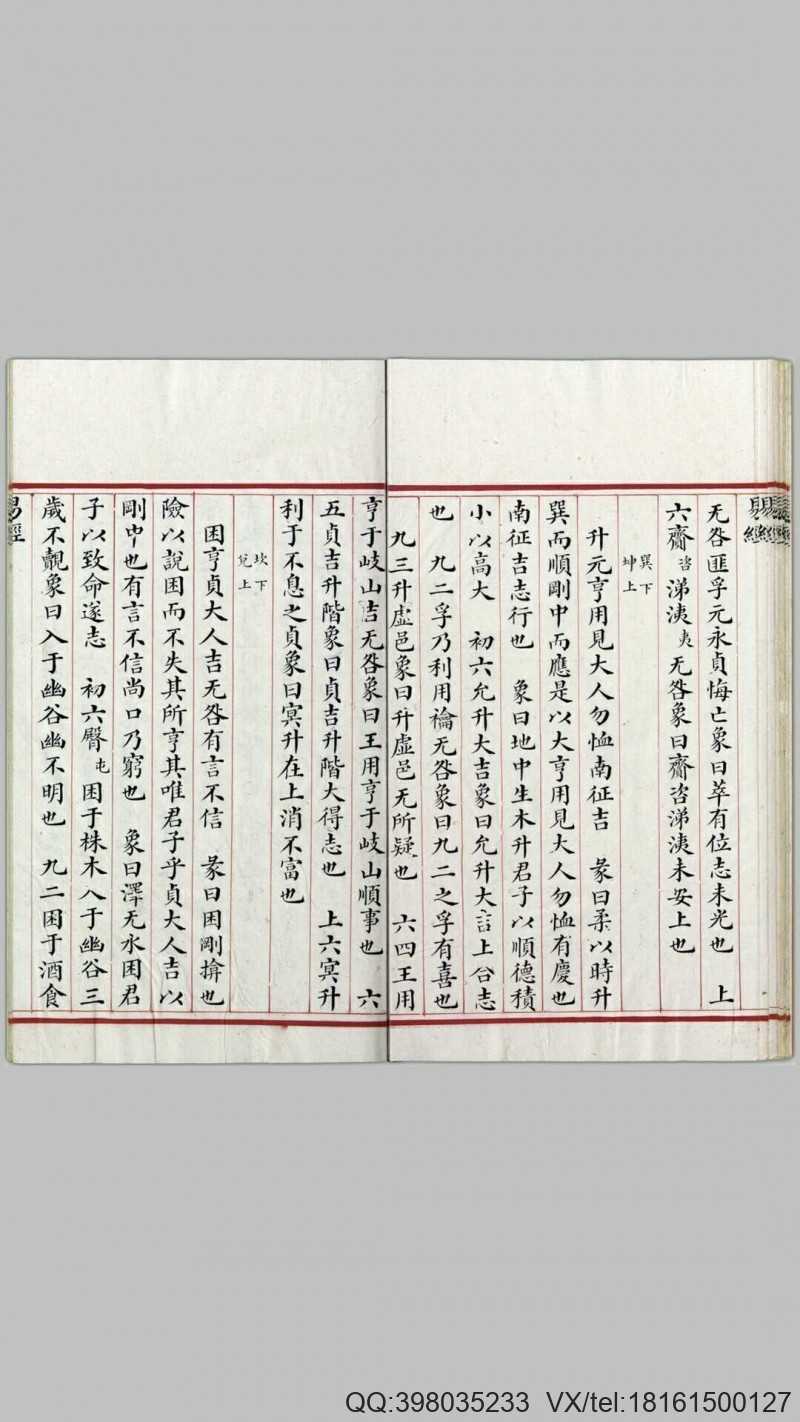 易經
无咎匪孚元永貞悔亡象曰萃有位志未光也　上
六齋咨涕洟夷无咎象曰齋咨涕洟未安上也
巽下
坤上
升元亨用見大人勿恤南征吉　彖曰柔以時升
巽而順剛中而應是以大亨用見大人勿恤有慶也
南征吉志行也　象曰地中生木升君子以順德積
小以高大　初六允升大吉象曰允升大吉上合志
也　九二孚乃利用禴无咎象曰九二之孚有喜也
九三升虛邑象曰升虛邑无所疑也　六四王用
亨于岐山吉无咎象曰王用亨于岐山順事也　六
五貞吉升階象曰貞吉升階大得志也　上六冥升
利于不息之貞象曰冥升在上消不富也
坎下
兌上
困亨貞大人吉无咎有言不信　彖曰困剛揜也
險以說困而不失其所亨其唯君子乎貞大人吉以
剛中也有言不信尚口乃窮也　象曰澤无水困君
子以致命遂志　初六臀屯困于株木入于幽谷三
歲不覿象曰入于幽谷幽不明也　九二困于酒食
易經
QQ:398035233 VX/tel:18161500127